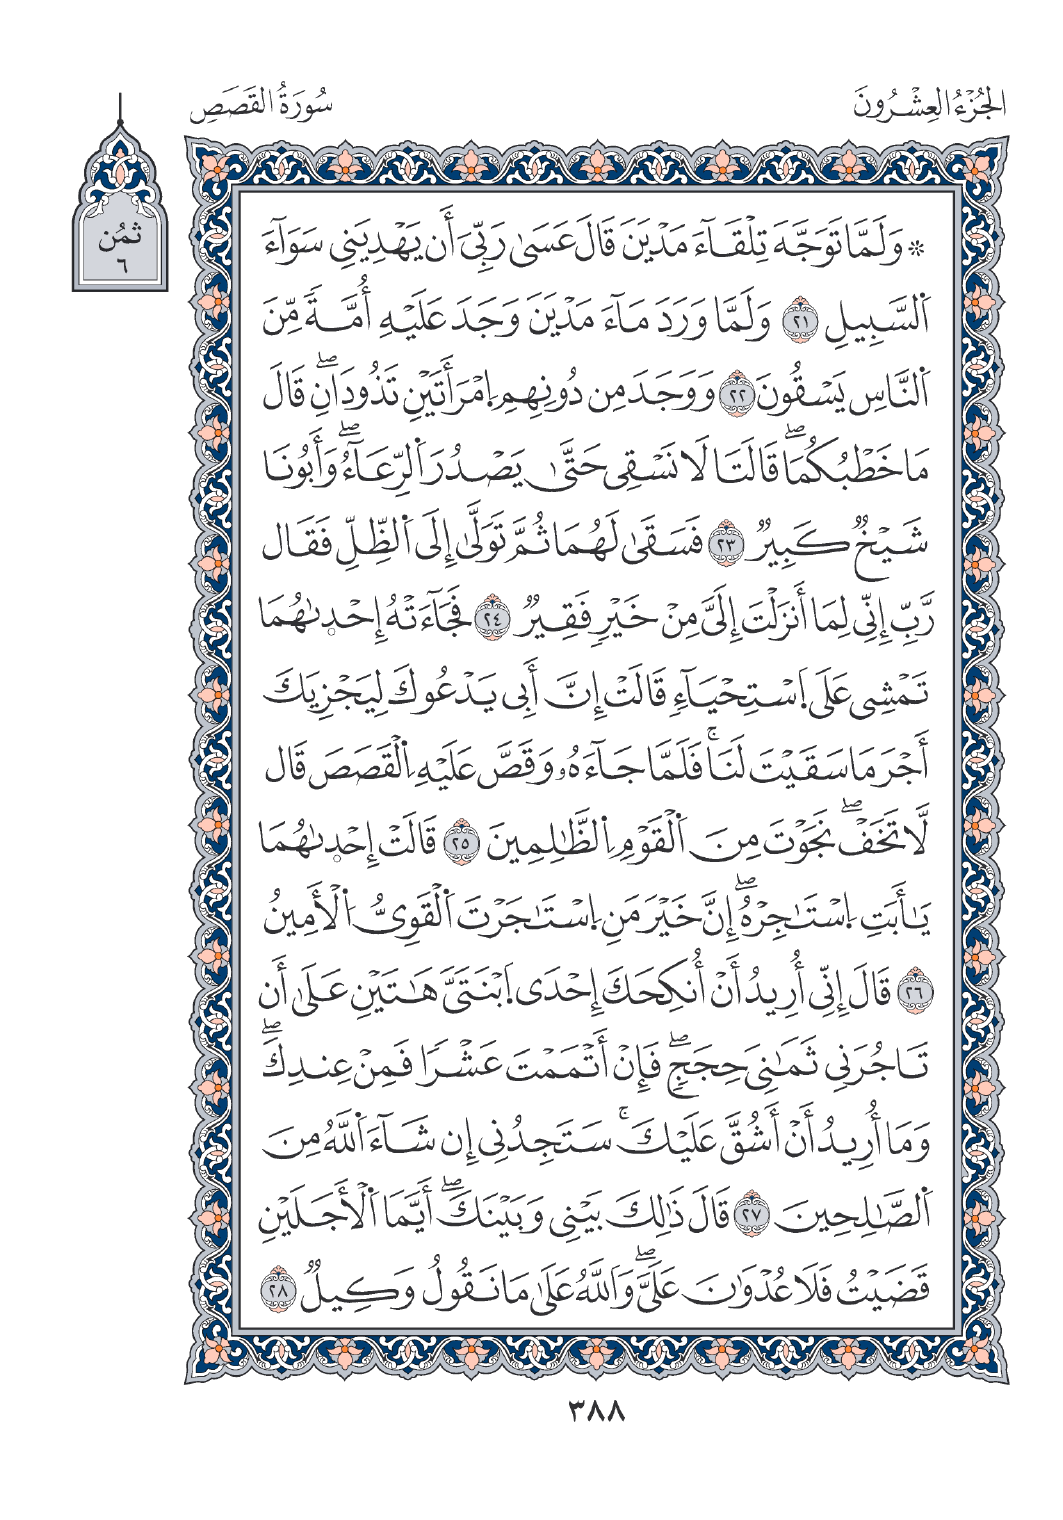 الجُزْءُ العِشْرُونَ
سُورَةُ القَصَصِ
ثمُن
٦
۞ وَلَمَّا تَوَجَّهَ تِلْقَآءَ مَدْيَنَ قَالَ عَسَىٰ رَبِّيَ أَن يَهْدِيَنِي سَوَآءَ
اَ۬لسَّبِيلِ ٢١ وَلَمَّا وَرَدَ مَآءَ مَدْيَنَ وَجَدَ عَلَيْهِ أُمَّةً مِّنَ
اَ۬لنَّاسِ يَسْقُونَ ٢٢ وَوَجَدَ مِن دُونِهِمِ اِ۪مْرَأَتَيْنِ تَذُودَانِۖ قَالَ
مَا خَطْبُكُمَاۖ قَالَتَا لَا نَسْقِي حَتَّىٰ يَصْدُرَ اَ۬لرِّعَآءُۖ وَأَبُونَا
شَيْخٌ كَبِيرٌ ٢٣ فَسَقَىٰ لَهُمَا ثُمَّ تَوَلَّىٰ إِلَى اَ۬لظِّلِّ فَقَال
رَّبِّ إِنِّي لِمَا أَنزَلْتَ إِلَيَّ مِنْ خَيْرٍ فَقِيرٌ ٢٤ فَجَآءَتْهُ إِحْدۭىٰهُمَا
تَمْشِي عَلَى اَ۪سْتِحْيَآءٍ قَالَتْ إِنَّ أَبِي يَدْعُوكَ لِيَجْزِيَكَ
أَجْرَ مَا سَقَيْتَ لَنَاۚ فَلَمَّا جَآءَهُۥ وَقَصَّ عَلَيْهِ اِ۬لْقَصَصَ قَال
لَّا تَخَفْۖ نَجَوْتَ مِنَ اَ۬لْقَوْمِ اِ۬لظَّٰلِمِينَ ٢٥ قَالَتْ إِحْدۭىٰهُمَا
يَٰأَبَتِ اِ۪سْتَٰجِرْهُۖ إِنَّ خَيْرَ مَنِ اِ۪سْتَٰجَرْتَ اَ۬لْقَوِيُّ اُ۬لْأَمِينُ
٢٦ قَالَ إِنِّي أُرِيدُ أَنْ أُنكِحَكَ إِحْدَى اَ۪بْنَتَيَّ هَٰتَيْنِ عَلَىٰ أَن
تَاجُرَنِي ثَمَٰنِيَ حِجَجٍۖ فَإِنْ أَتْمَمْتَ عَشْرًا فَمِنْ عِندِكَۖ
وَمَا أُرِيدُ أَنْ أَشُقَّ عَلَيْكَۚ سَتَجِدُنِي إِن شَآءَ اَ۬للَّهُ مِنَ
اَ۬لصَّٰلِحِينَ ٢٧ قَالَ ذَٰلِكَ بَيْنِي وَبَيْنَكَۖ أَيَّمَا اَ۬لْأَجَلَيْنِ
قَضَيْتُ فَلَا عُدْوَٰنَ عَلَيَّۖ وَاَ۬للَّهُ عَلَىٰ مَا نَقُولُ وَكِيلٌ ٢٨
٣٨٨